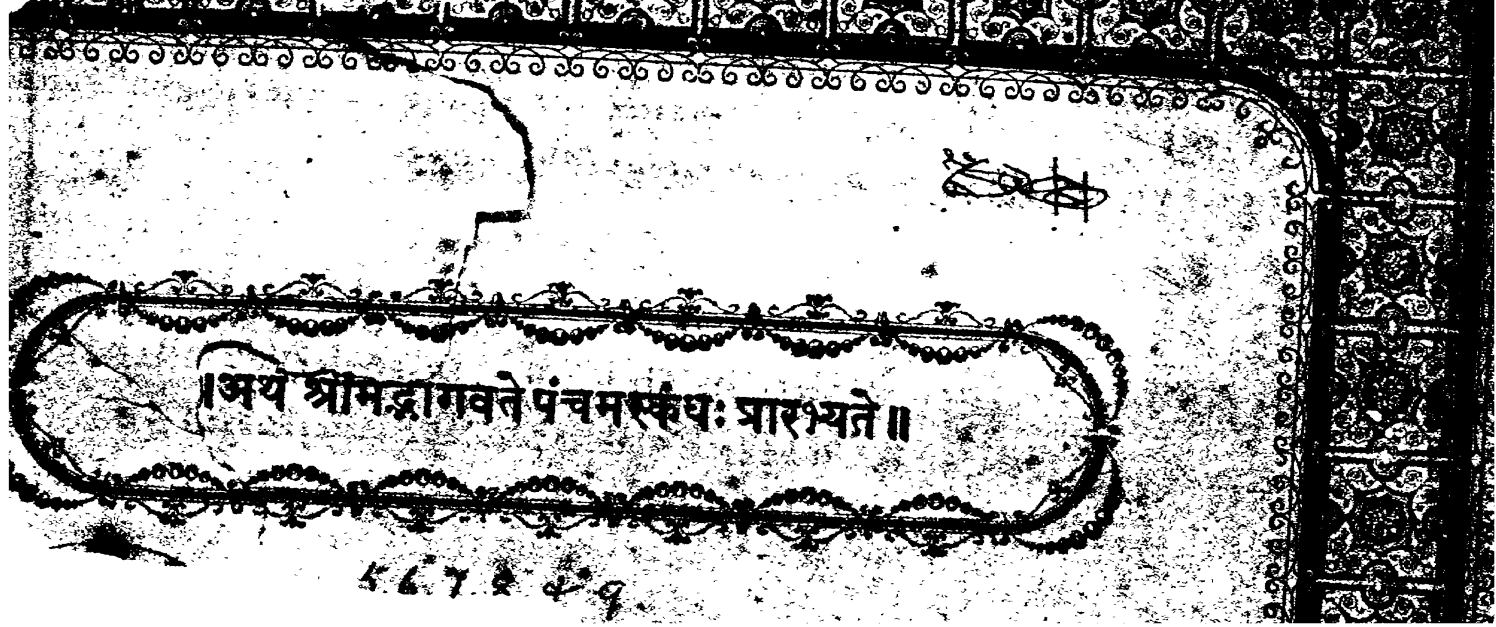 ।अथ श्रीमद्भागवते पंचमस्कंधः प्रारभ्यते॥
5 6 7 8